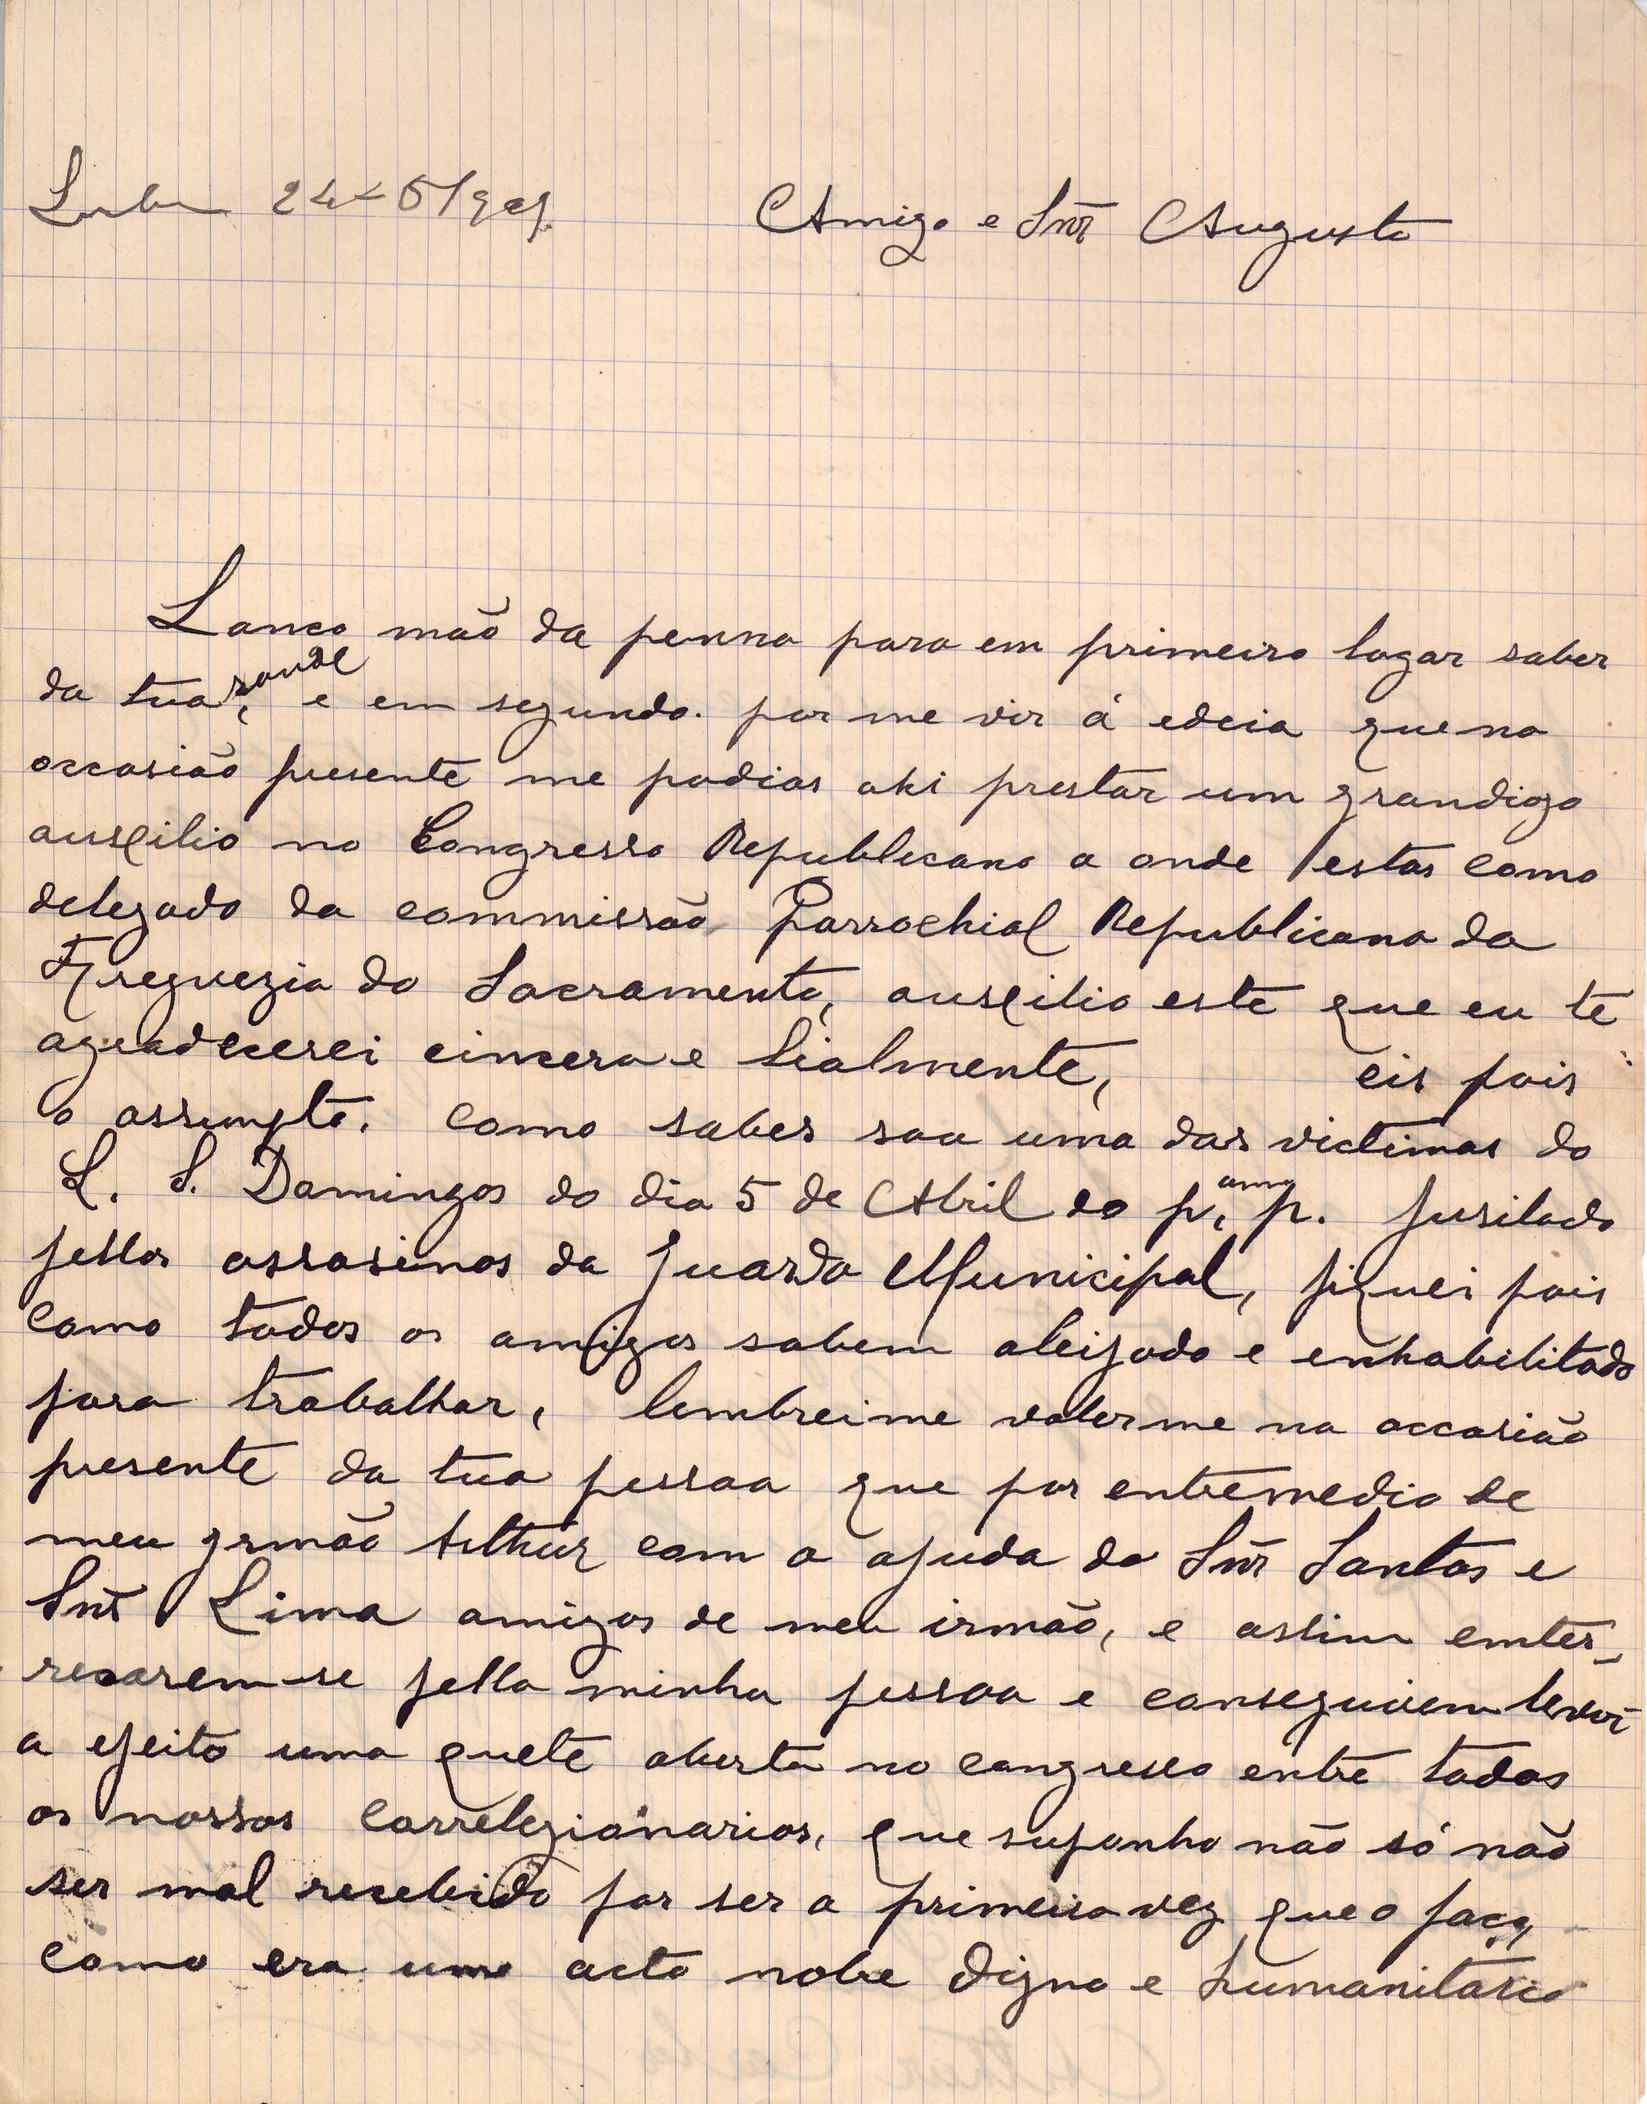 24-5/909. Amigo e Snr Augusto
Lanco mão da penna para em primeiro logar saber
da tua saude, e em segundo. por me vir á edeia que na
occasião presente me podias aki prestar um grandiozo
auscilio no Congresso Republicano a onde estas como
delegado da commissão Parrochial Republicana da
Freguezia do Sacramento, auscilio este que eu te
agradecerei cincera e lialmente, eis pois
o assumpto. como sabes sou uma das victimas do
L. S. Domingos do dia 5 de Abril do p. ano p. fusilado
pellos assasinos da Guarda Municipal, fiquei pois
como todos os amigos sabem aleijado e enhabilitado
para trabalhar, lembreime valerme na occasião
presente da tua pessoa que por entremedio de
meu yrmão Arthur com a ajuda do Snr Santos e
Snr Lima amigos de meu irmão, e assim enter-
resarem-se pella minha pessoa e conseguirem levar
a efeito uma quete aberta no congresso entre todos
os nossos correlegionarios, que suponho não só não
ser mal recebido por ser a primeira vez que o faço,
como era um acto nobre digno e humanitario